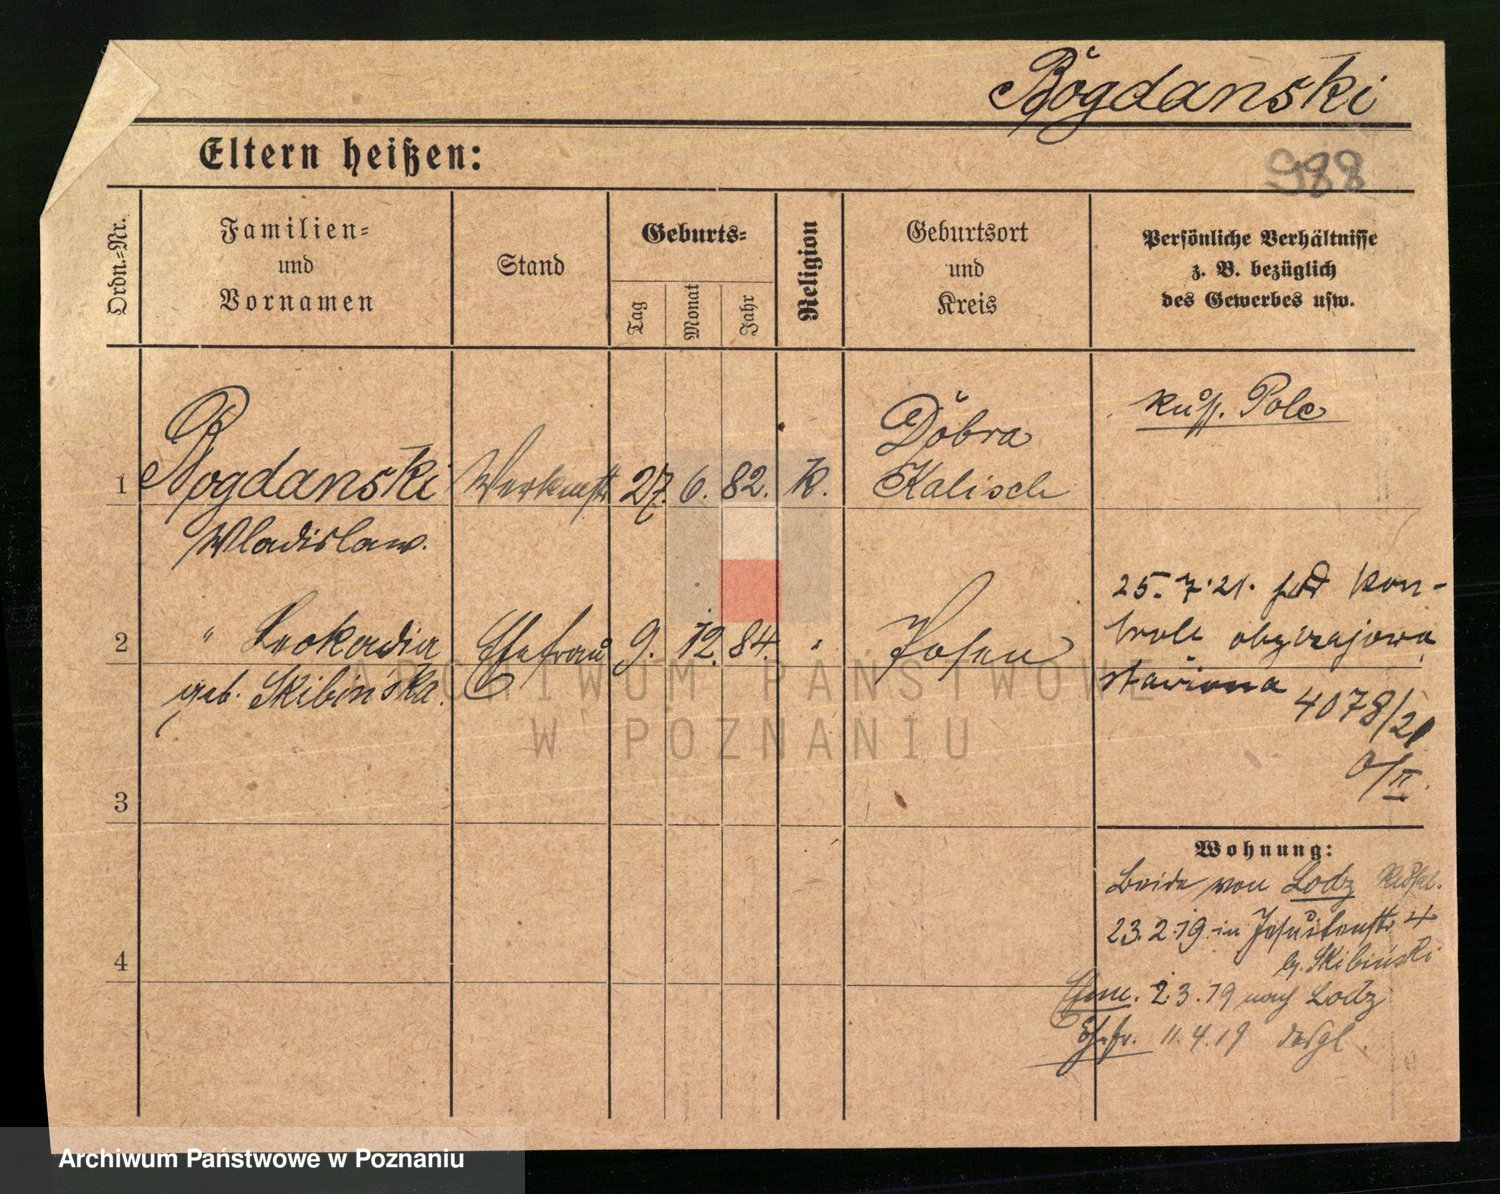 Bogdanski
Eltern heißen:
988
Ordn.-Nr.
Familien-
und
Vornamen
Stand
Geburts-
Tag
Monat
Jahr
Religion
Geburtsort
und
Kreis
Persönliche Verhältnisse
z. B. bezüglich
des Gewerbes usw.
1 Bogdanski Werkmstr 27. 6. 82. K. Dobra
Kalisch
russ. Pole
Wladislaw.
2 " Leokadia Ehefrau 9. 12. 84. " Posen
geb. Skibińska.
25. 7. 21. Kon-
trole
4078/21
3
4
Wohnung:
Beide von Lodz
23.2.19 in Jesuitenstr 4
b. Skibiński
Ehem. 2.3.19 nach Lodz
Ehefr. 11.4.19 desgl.
ARCHIWUM PAŃSTWOWE
W POZNANIU
Archiwum Państwowe w Poznaniu